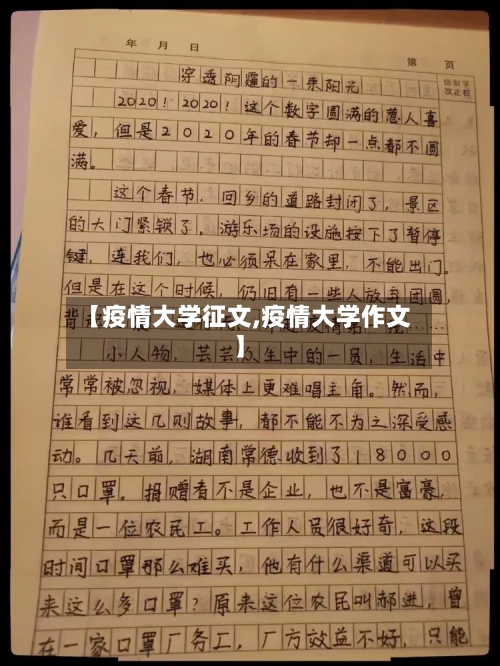 年 月 日
第 页
错别字
改正栏
穿透阴霾的一束阳光
2020!2020!这个数字圆满的惹人喜
爱,但是2020年的春节却一点都不圆
满。
这个春节,回乡的道路封闭了,景区
的大门紧锁了,游乐场的设施按下了暂停
键,连我们,也必须呆在家里,不能出门。
但是在这个时候,仍旧有一些人放弃团圆,
【疫情大学征文,疫情大学作文
】
小人物,芸芸众生中的一员,生活中
常常被忽视,媒体上更难唱主角。然而,
谁看到这几则故事,都不能不为之深受感
动。几天前,湖南常德收到了18000
只口罩。捐赠者不是企业,也不是富豪,
而是一位农民工。工作人员很好奇,这段
时间口罩那么难买,他有什么渠道可以买
来这么多口罩?原来这位农民叫郝进,曾
在一家口罩厂务工,厂方效益不好,只能